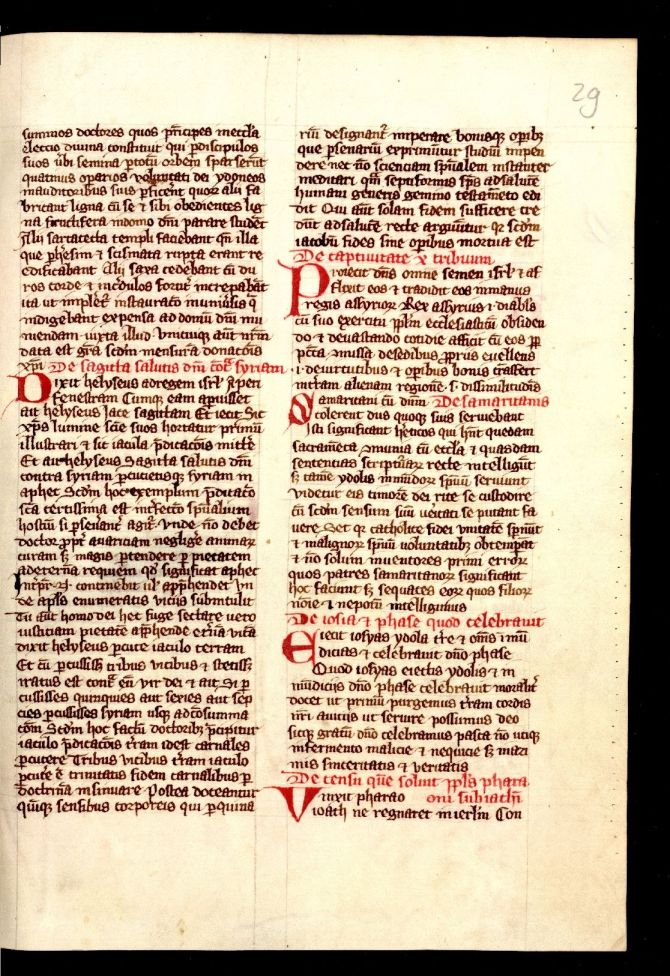 29
summos doctores quos p̄ncipes in eccl̄a
electio diuina constituit qui p̱ discipulos
suos ubi semina p̱ totū orbem sparserūt
quatinus oparios voluntati dei ydoneos
in auditoribus suis p̱ficerent quorū alii fa
bricant ligna cū se et sibi obedientes lig
na fructifera in domo dn̄i parare studēt
Alii sartatecta templi faciebant qn̄ illa
que p̱ hesim & scismata rupta erant re
edificabant Alii saxa cedebant cū du
ros corde & incredulos fortit̄ increpabāt
ita ut implet̄ instauratō muniōis q̄
indigebant expensa ad domū dn̄i mu
niendam iuxta illud Vnicuiqꝫ aūt nr̄m
data est gr̄a scdm̄ mensurā donacōis
xp̄i De sagitta salutis dn̄i cont̄ syriam
Dixit helyseus ad regem isrl̄ Aperi
fenestram Cumqꝫ eam apuisset
ait helyseus Jace sagittam Et iecit Sic
xp̄s lumine scīe suos hortatur primū
illustrari & sic iacula p̄dicatōis mitte
Et ait helyseus Sagitta salutis dn̄i
contra syriam p̱cuciesqꝫ syriam in
aphec Scdm̄ hoc exemplum p̄dicatō
sc̄a certissima est int̄fectō spūalium
hostiū si p̱seuerant̄ agit̄ Vnde nō debet
doctor ꝓpt̄ auariciam neglige animaꝝ
curam sꝫ magis p̱tendere p̱ pietatem
ad et̄nā requiem qd̓ significat aphec
Int̄pr̄
de ap̄lis enumeratis viciis subintulit
Tu aūt homo dei hec fuge sectare uero
iusticiam pietatē apphende et̄nā vitā
dixit helyseus p̱cute iaculo terram
Et cū p̱cussissꝫ tribus vicibus & stetissꝫ
iratus est cont̄ eū vir dei & ait Si p̱
cussisses quinquies aut sexies aut sep
cies p̱cussisses syriam usqꝫ ad cōsumma
cōm Scdm̄ hoc factū doctoribꝫ p̄cipitur
iaculo p̄dicatōis tr̄am id est carnales
p̱cutere Tribus vicibus tr̄am iaculo
p̱cut̄e ē trinitatis fidem carnalibus p̱
doctrinā insinuare Postea doceantur
quīqꝫ sensibus corporeis qui p̱ quina
riū designant̄ imperare bonisqꝫ opibꝫ
que p̱ senariū exprimuntur studiū impen
dere nec nō scienciam spūalem instanter
meditari qm̄ septiformis sp̄s ad salutē
humani generis gemino testamēto edi
dit Qui aūt solam fidem sufficere cre
dūt ad salutē recte arguūtur qꝛ scdm̄
iacobū fides sine opibus mortua est
De captiuitate x tribuum
Proiecit dn̄s omne semen isrl̄ & af
flixit eos & tradidit eos in manus
regis assyrioꝝ Rex assyrius ē diabl̄s
cū suo exercitu pp̄lm ecclesiasticū obsiden
do & deuastando cotidie afficit cū eos p̱
pc̄ca missa de sedibus ꝓpriis euellens
.i. de uirtutibus & opibus bonis trāsfert
in tr̄am alienam regionē .s. dissimilitudīs
Samaritani cū dn̄m De samaritanis
colerent diis quoqꝫ suis seruiebant
Isti significant heticos qui hn̄t quedam
sacramēta cōmunia cū eccl̄a & quasdam
sentencias scripturaꝝ recte intelligūt
sꝫ tamē ydolis inmūdoꝝ spūū seruiunt
videtur eis timorē dei rite se custodire
cū scdm̄ sensum suū ueritati se putant fa
uere Set qꝛ catholice fidei unitatē sp̱nūt
& malignoꝝ spūū voluntatibꝫ obtempāt
& nō solum inuentores primi erroꝝ
quos patres samaritanoꝝ significant
hoc faciunt sꝫ sequaces eoꝝ quos filioꝝ
noīe & nepotū intelligimus
De iosia & phase quod celebrauit
Eiecit iosyas ydola t̄re & om̄s īmū
dicias & celebrauit dn̄o phase
Quod iosyas eiectis ydolis & in
mūdiciis dn̄o phase celebrauit moralit̄
docet ut primū purgemus tr̄am cordis
nr̄i a uiciis ut seruire possumus deo
sicqꝫ gratū dn̄o celebramus pasca nō utiqꝫ
in fermento malicie & nequicie sꝫ in azi
mis sinceritatis & veritatis
De censu que soluit pp̄ls phara
Vinxit pharao oni sub iachī
ioath ne regnaret in ierl̄m Con